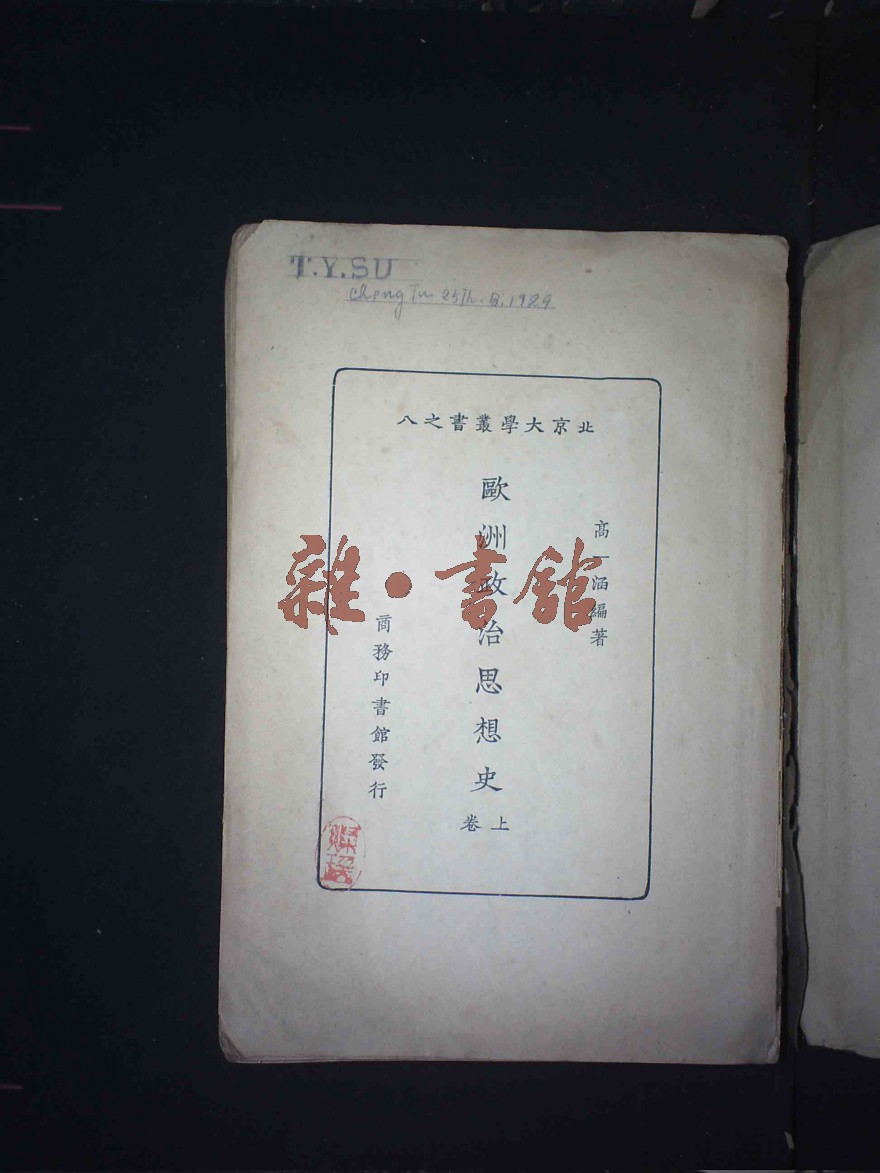 T.Y.SU
Cheng Tu 25th. 8. 1929
北京大學叢書之八
高一涵編著
歐洲政治思想史
上卷
商務印書館發行
雜·書館